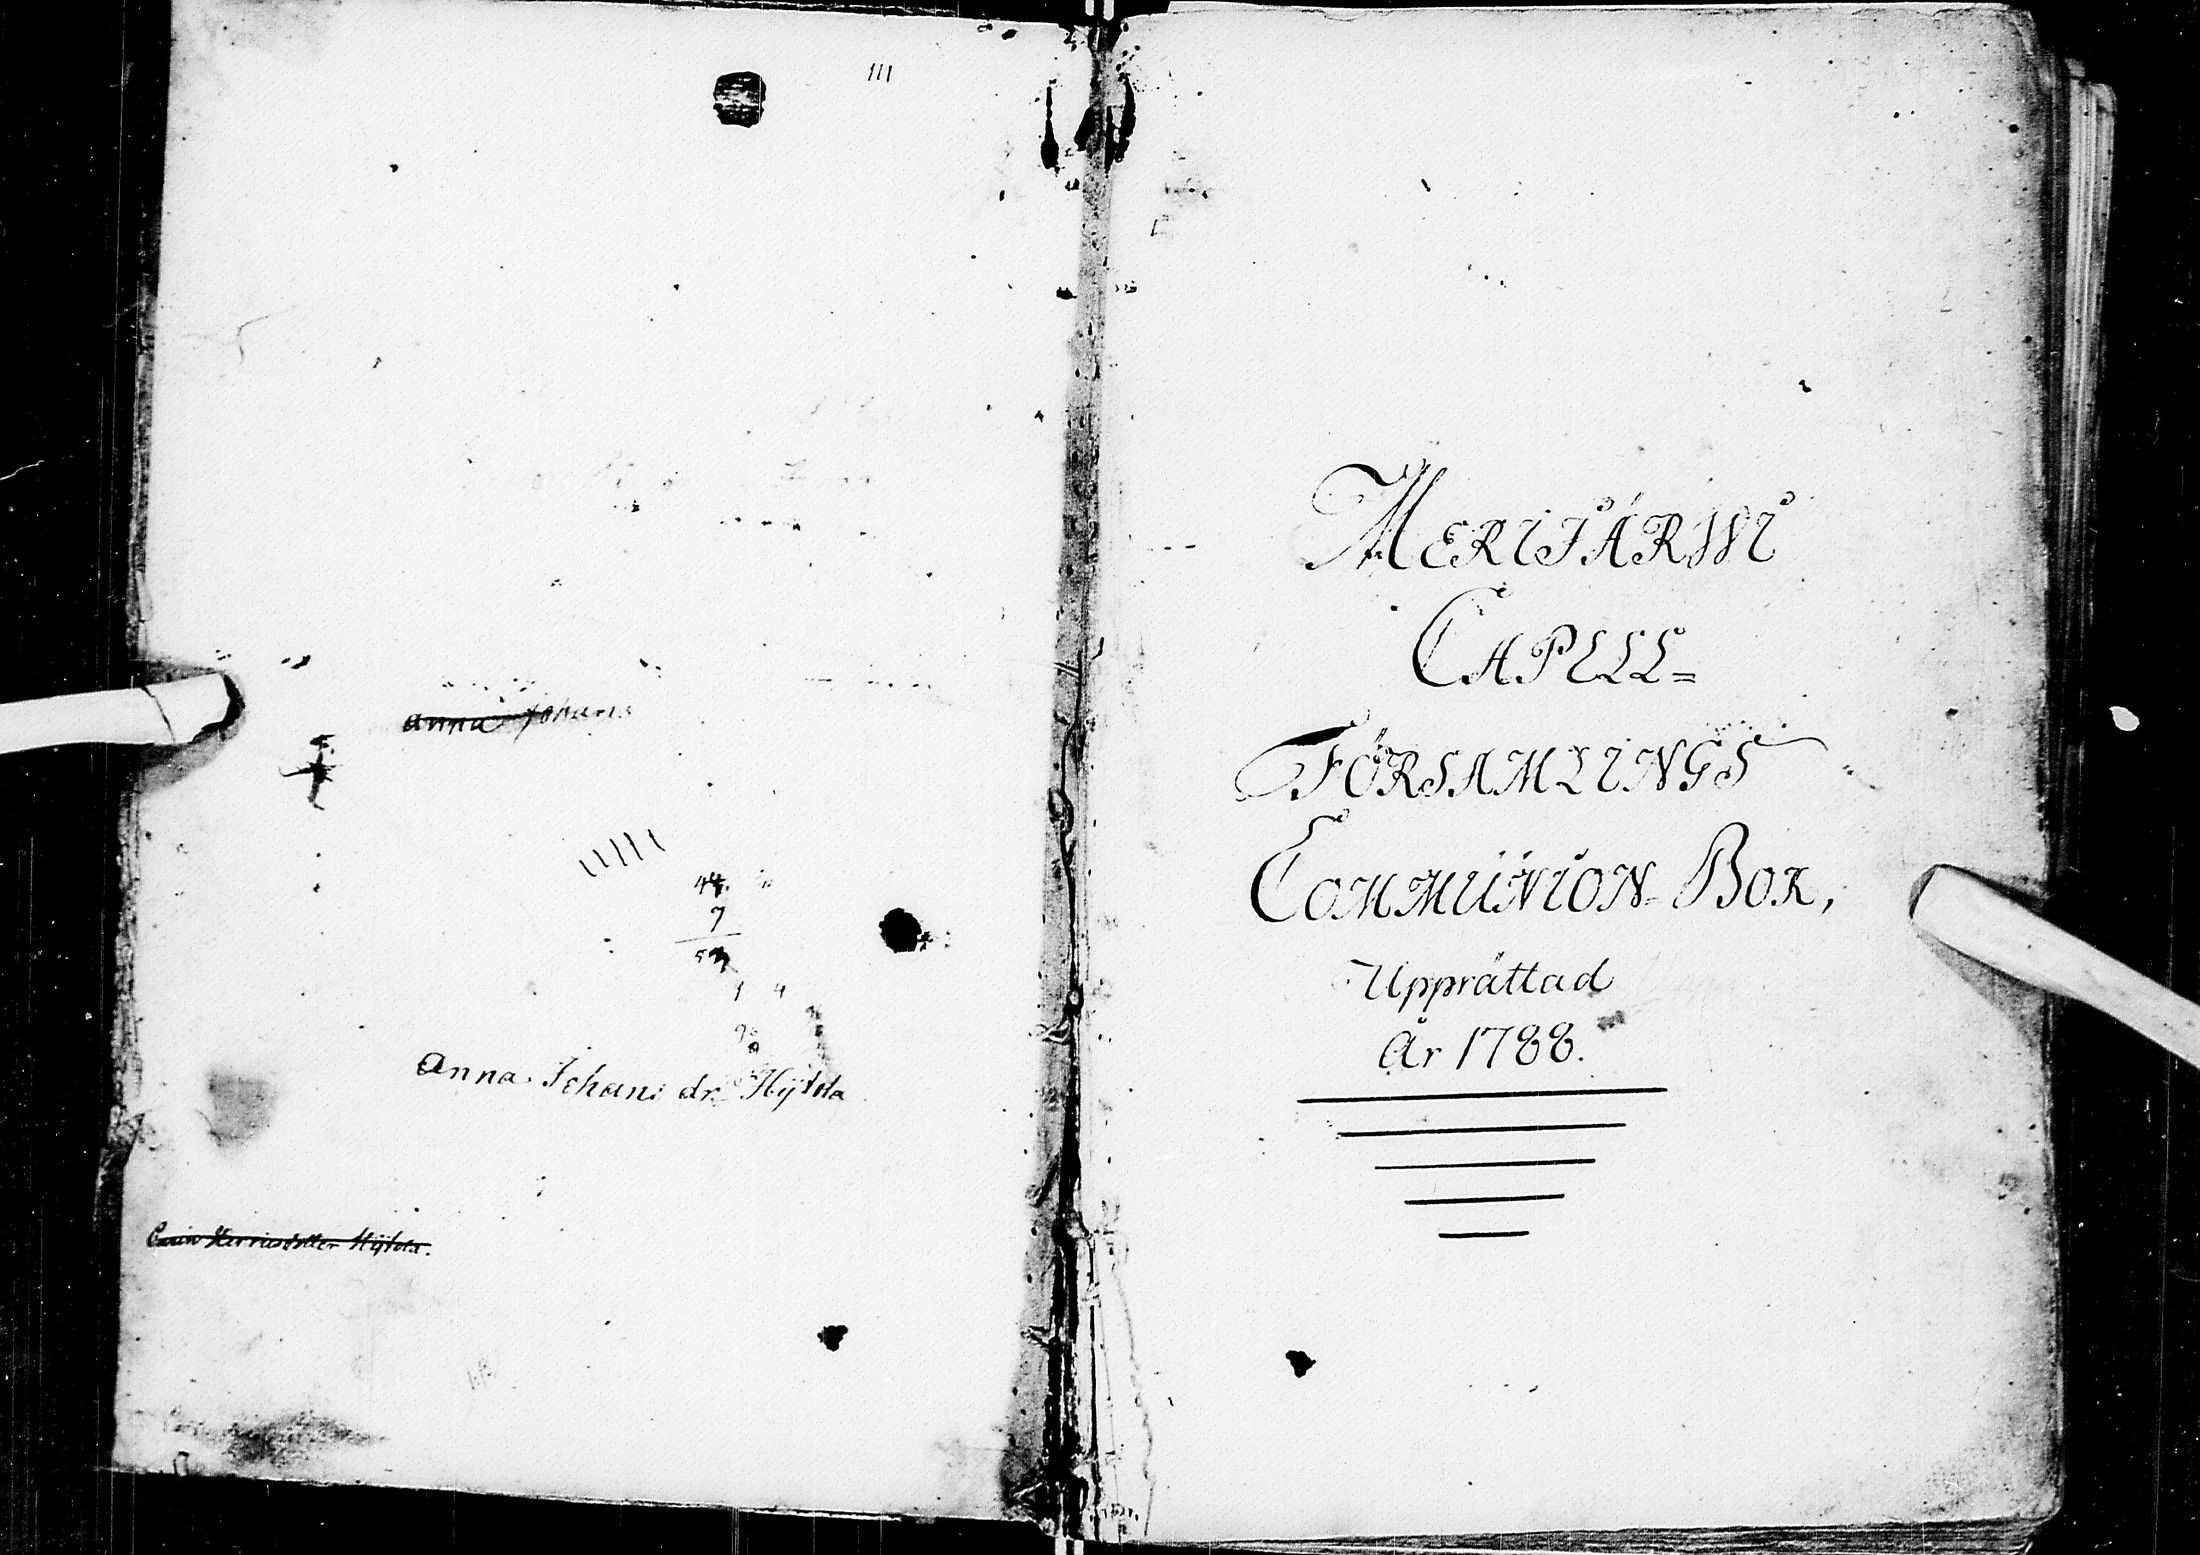 III
anna Johans
44
7
51
1 4
Anna Johans dr. Hÿtola
Carin Henriksdotter Hÿtola.
MERIJÄRWI
CAPELL=
FÖRSAMLINGS
COMMUNION-BOK,
Upprättad
År 1788.